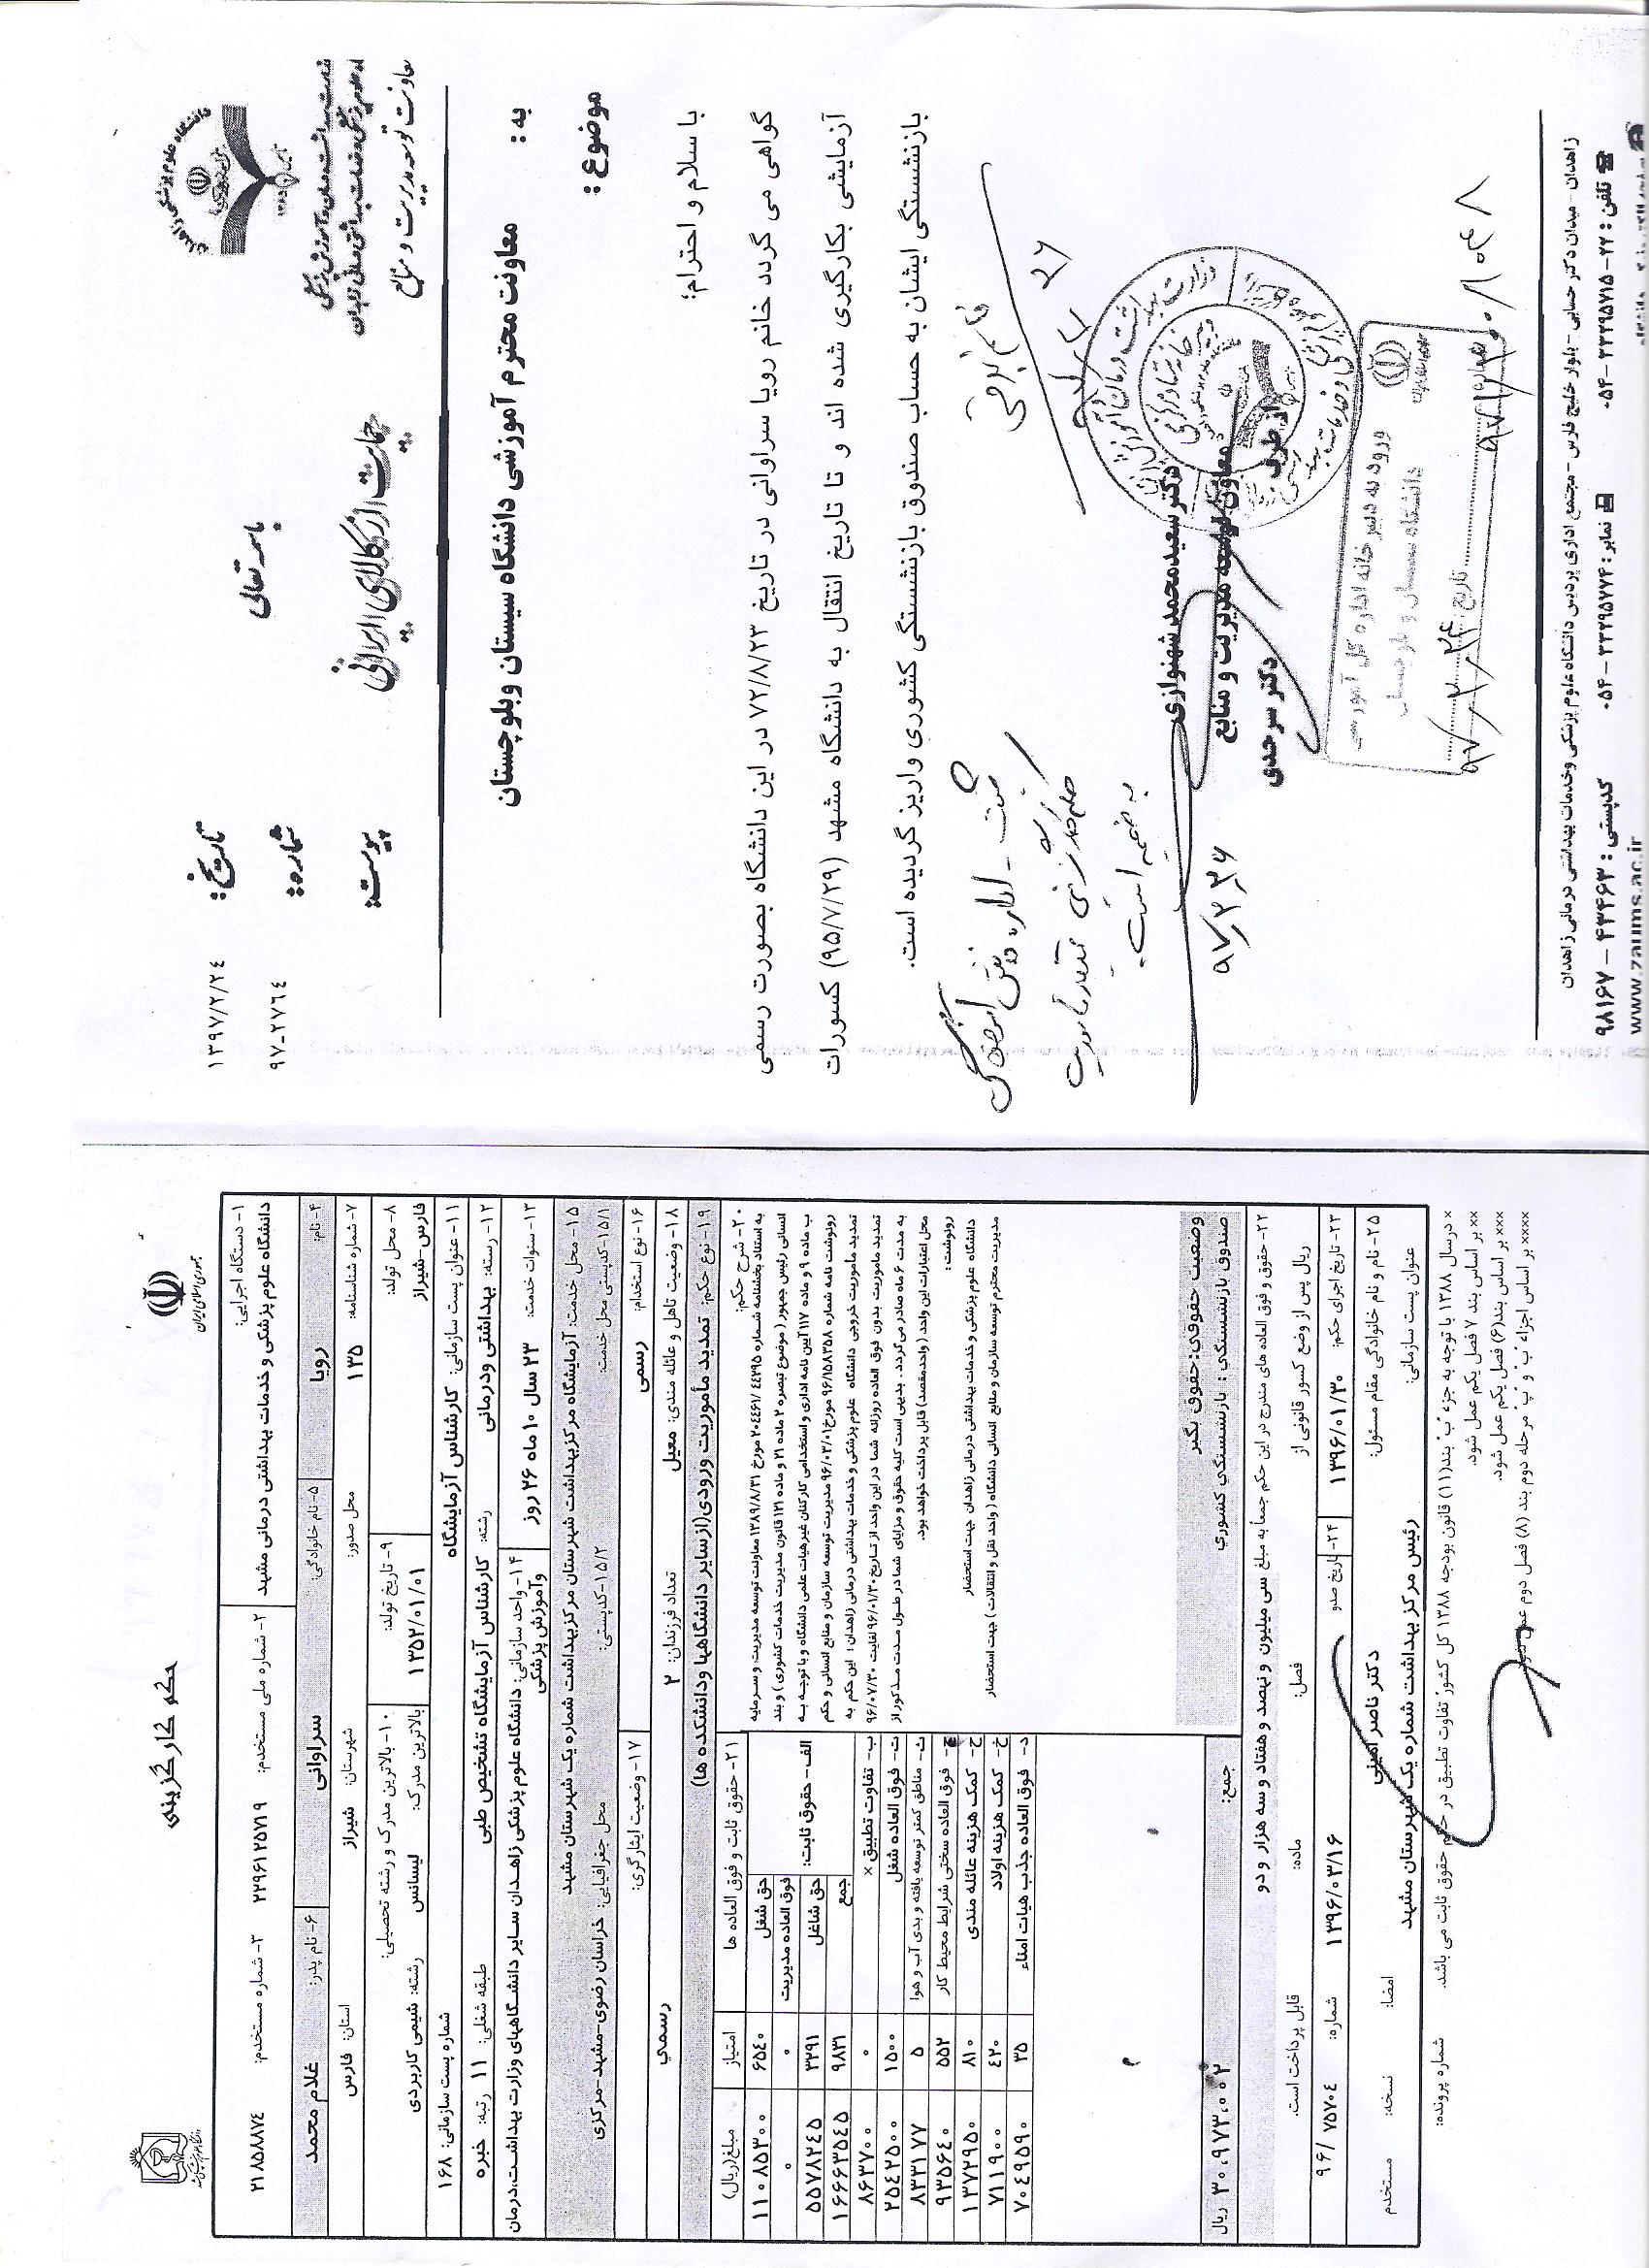 باسمه تعالی
تاریخ: ۱۳۹۷/۲/۲۴
شماره: ۹۷-۲۷۶۴
پیوست:
حمایت از کالای ایرانی
معاونت توسعه مدیریت و منابع
به : معاونت محترم آموزشی دانشگاه سیستان وبلوچستان
موضوع :
با سلام و احترام؛
گواهی می گردد خانم رویا سراوانی در تاریخ ۷۲/۸/۲۳ در این دانشگاه بصورت رسمی
آزمایشی بکارگیری شده اند و تا تاریخ انتقال به دانشگاه مشهد (۹۵/۷/۲۹) کسورات
بازنشستگی ایشان به حساب صندوق بازنشستگی کشوری واریز گردیده است.
دکتر سعیدمحمد شهنوازی
معاون توسعه مدیریت و منابع
از طرف
دکتر سرحدی
ورود به دبیرخانه اداره کل آموزشی
دانشگاه سیستان و بلوچستان
زاهدان - میدان دکتر حسابی - بلوار خلیج فارس - مجتمع اداری پردیس دانشگاه علوم پزشکی وخدمات بهداشتی درمانی زاهدان
تلفن : ۲۲-۳۳۲۹۵۷۱۵-۰۵۴ نمابر : ۳۳۲۹۵۷۷۴ - ۰۵۴ کدپستی : ۴۳۴۶۳ - ۹۸۱۶۷
www.zaums.ac.ir
جمهوری اسلامی ایران
حکم کارگزینی
۱- دستگاه اجرایی: ۲- شماره ملی مستخدم: ۳- شماره مستخدم:
دانشگاه علوم پزشکی و خدمات بهداشتی درمانی مشهد ۲۲۹۶۱۲۵۷۱۹ ۲۱۸۵۸۸۷۴
۴- نام: رویا ۵- نام خانوادگی: سراوانی ۶- نام پدر: غلام محمد
۷- شماره شناسنامه: ۱۳۵ محل صدور: شهرستان: شیراز استان: فارس
۸- محل تولد: فارس-شیراز ۹- تاریخ تولد: ۱۳۵۲/۰۱/۰۱ ۱۰- بالاترین مدرک و رشته تحصیلی:
بالاترین مدرک: لیسانس رشته: شیمی کاربردی
۱۱- عنوان پست سازمانی: کارشناس آزمایشگاه شماره پست سازمانی: ۱۶۸
۱۲- رسته: بهداشتی ودرمانی رشته: کارشناس آزمایشگاه تشخیص طبی طبقه شغلی: ۱۱ رتبه: خبره
۱۳- سنوات خدمت: ۲۳ سال ۱۰ ماه ۲۶ روز ۱۴- واحد سازمانی: دانشگاه علوم پزشکی زاهدان سایر دانشگاههای وزارت بهداشت،درمان وآموزش پزشکی
۱۵- محل خدمت: آزمایشگاه مرکزبهداشت شهرستان مرکزبهداشت شماره یک شهرستان مشهد
۱۵/۱-کدپستی محل خدمت: ۱۵/۲-کدپستی: محل جغرافیایی: خراسان رضوی-مشهد-مرکزی
۱۶- نوع استخدام: رسمی ۱۷- وضعیت ایثارگری: رسمي
۱۸- وضعیت تاهل و عائله مندی: معیل تعداد فرزندان: ۲
۱۹- نوع حکم: تمدید مأموریت ورودی(ازسایر دانشگاهها ودانشکده ها)
۲۰- شرح حکم:
به استناد بخشنامه شماره ۲۰۴۴۶۱/۴۴۲۹۵ مورخ ۱۳۸۹/۸/۳۱ معاونت توسعه مدیریت و سرمایه
انسانی رئیس جمهور ( موضوع تبصره ۲ ماده ۲۱ و ماده ۱۲۱ قانون مدیریت خدمات کشوری ) و بند
ب ماده ۹ و ماده ۱۱۷ آیین نامه اداری و استخدامی کارکنان غیرهیات علمی دانشگاه و با توجه به
رونوشت نامه شماره ۹۶/۱۵۸۳۵۸ مورخ ۹۶/۰۳/۰۱ مدیریت توسعه سازمان و منابع انسانی و حکم
تمدید ماموریت خروجی دانشگاه علوم پزشکی و خدمات بهداشتی درمانی زاهدان ؛ این حکم به
تمدید ماموریت بدون فوق العاده روزانه شما در این واحد از تاریخ ۹۶/۰۱/۳۰ لغایت ۹۶/۰۷/۳۰
به مدت ۶ ماه صادر می گردد . بدیهی است کلیه حقوق و مزایای شما در طول مدت مذکور از
محل اعتبارات این واحد (واحدمقصد) قابل پرداخت خواهد بود.
رونوشت :
دانشگاه علوم پزشکی و خدمات بهداشتی درمانی زاهدان جهت استحضار
مدیریت محترم توسعه سازمان و منابع انسانی دانشگاه ( واحد نقل وانتقالات ) جهت استحضار
وضعیت حقوقی:حقوق بگیر
صندوق بازنشستگی : بازنشستگي کشوري
۲۱- حقوق ثابت و فوق العاده ها امتیاز مبلغ(ریال)
الف- حقوق ثابت:
حق شغل ۶۵۴۰ ۱۱۰۸۵۳۰۰
فوق العاده مدیریت ۰ ۰
حق شاغل ۳۲۹۱ ۵۵۷۸۲۴۵
جمع ۹۸۳۱ ۱۶۶۶۳۵۴۵
ب- تفاوت تطبیق × ۰ ۸۶۳۷۰۰
ت- فوق العاده شغل ۱۵۰۰ ۲۵۴۲۵۰۰
ث- مناطق کمتر توسعه یافته و بدی آب و هوا ۵ ۸۳۳۱۷۷
ج- فوق العاده سختی شرایط محیط کار ۵۵۲ ۹۳۵۶۴۰
ح- کمک هزینه عائله مندی ۸۱۰ ۱۳۷۲۹۵۰
خ- کمک هزینه اولاد ۴۲۰ ۷۱۱۹۰۰
د- فوق العاده جذب هیات امناء ۳۵ ۷۰۴۹۵۹۰
جمع: ۳۰،۹۷۳،۰۰۲ ریال
۲۲- حقوق و فوق العاده های مندرج در این حکم جمعاً به مبلغ سی میلیون ونهصد و هفتاد و سه هزار و دو
ریال پس از وضع کسور قانونی از فصل: ماده: قابل پرداخت است.
۲۳- تاریخ اجرای حکم: ۱۳۹۶/۰۱/۳۰ ۲۴- تاریخ صدو ۱۳۹۶/۰۳/۱۶ شماره: ۹۶/ ۷۵۷۰۴
۲۵- نام و نام خانوادگی مقام مسئول: دکتر ناصر امینی امضا: نسخه: مستخدم
عنوان پست سازمانی: رئیس مرکز بهداشت شماره یک شهرستان مشهد
شماره پرونده:
× درسال ۱۳۸۸ با توجه به جزء ب بند(۱۱) قانون بودجه ۱۳۸۸ کل کشور تفاوت تطبیق در حکم حقوق ثابت می باشد.
×× بر اساس بند ۷ فصل یکم عمل شود.
××× بر اساس بند(۶) فصل یکم عمل شود.
×××× بر اساس اجزاء ب و پ مرحله دوم بند (۸) فصل دوم عمل شود